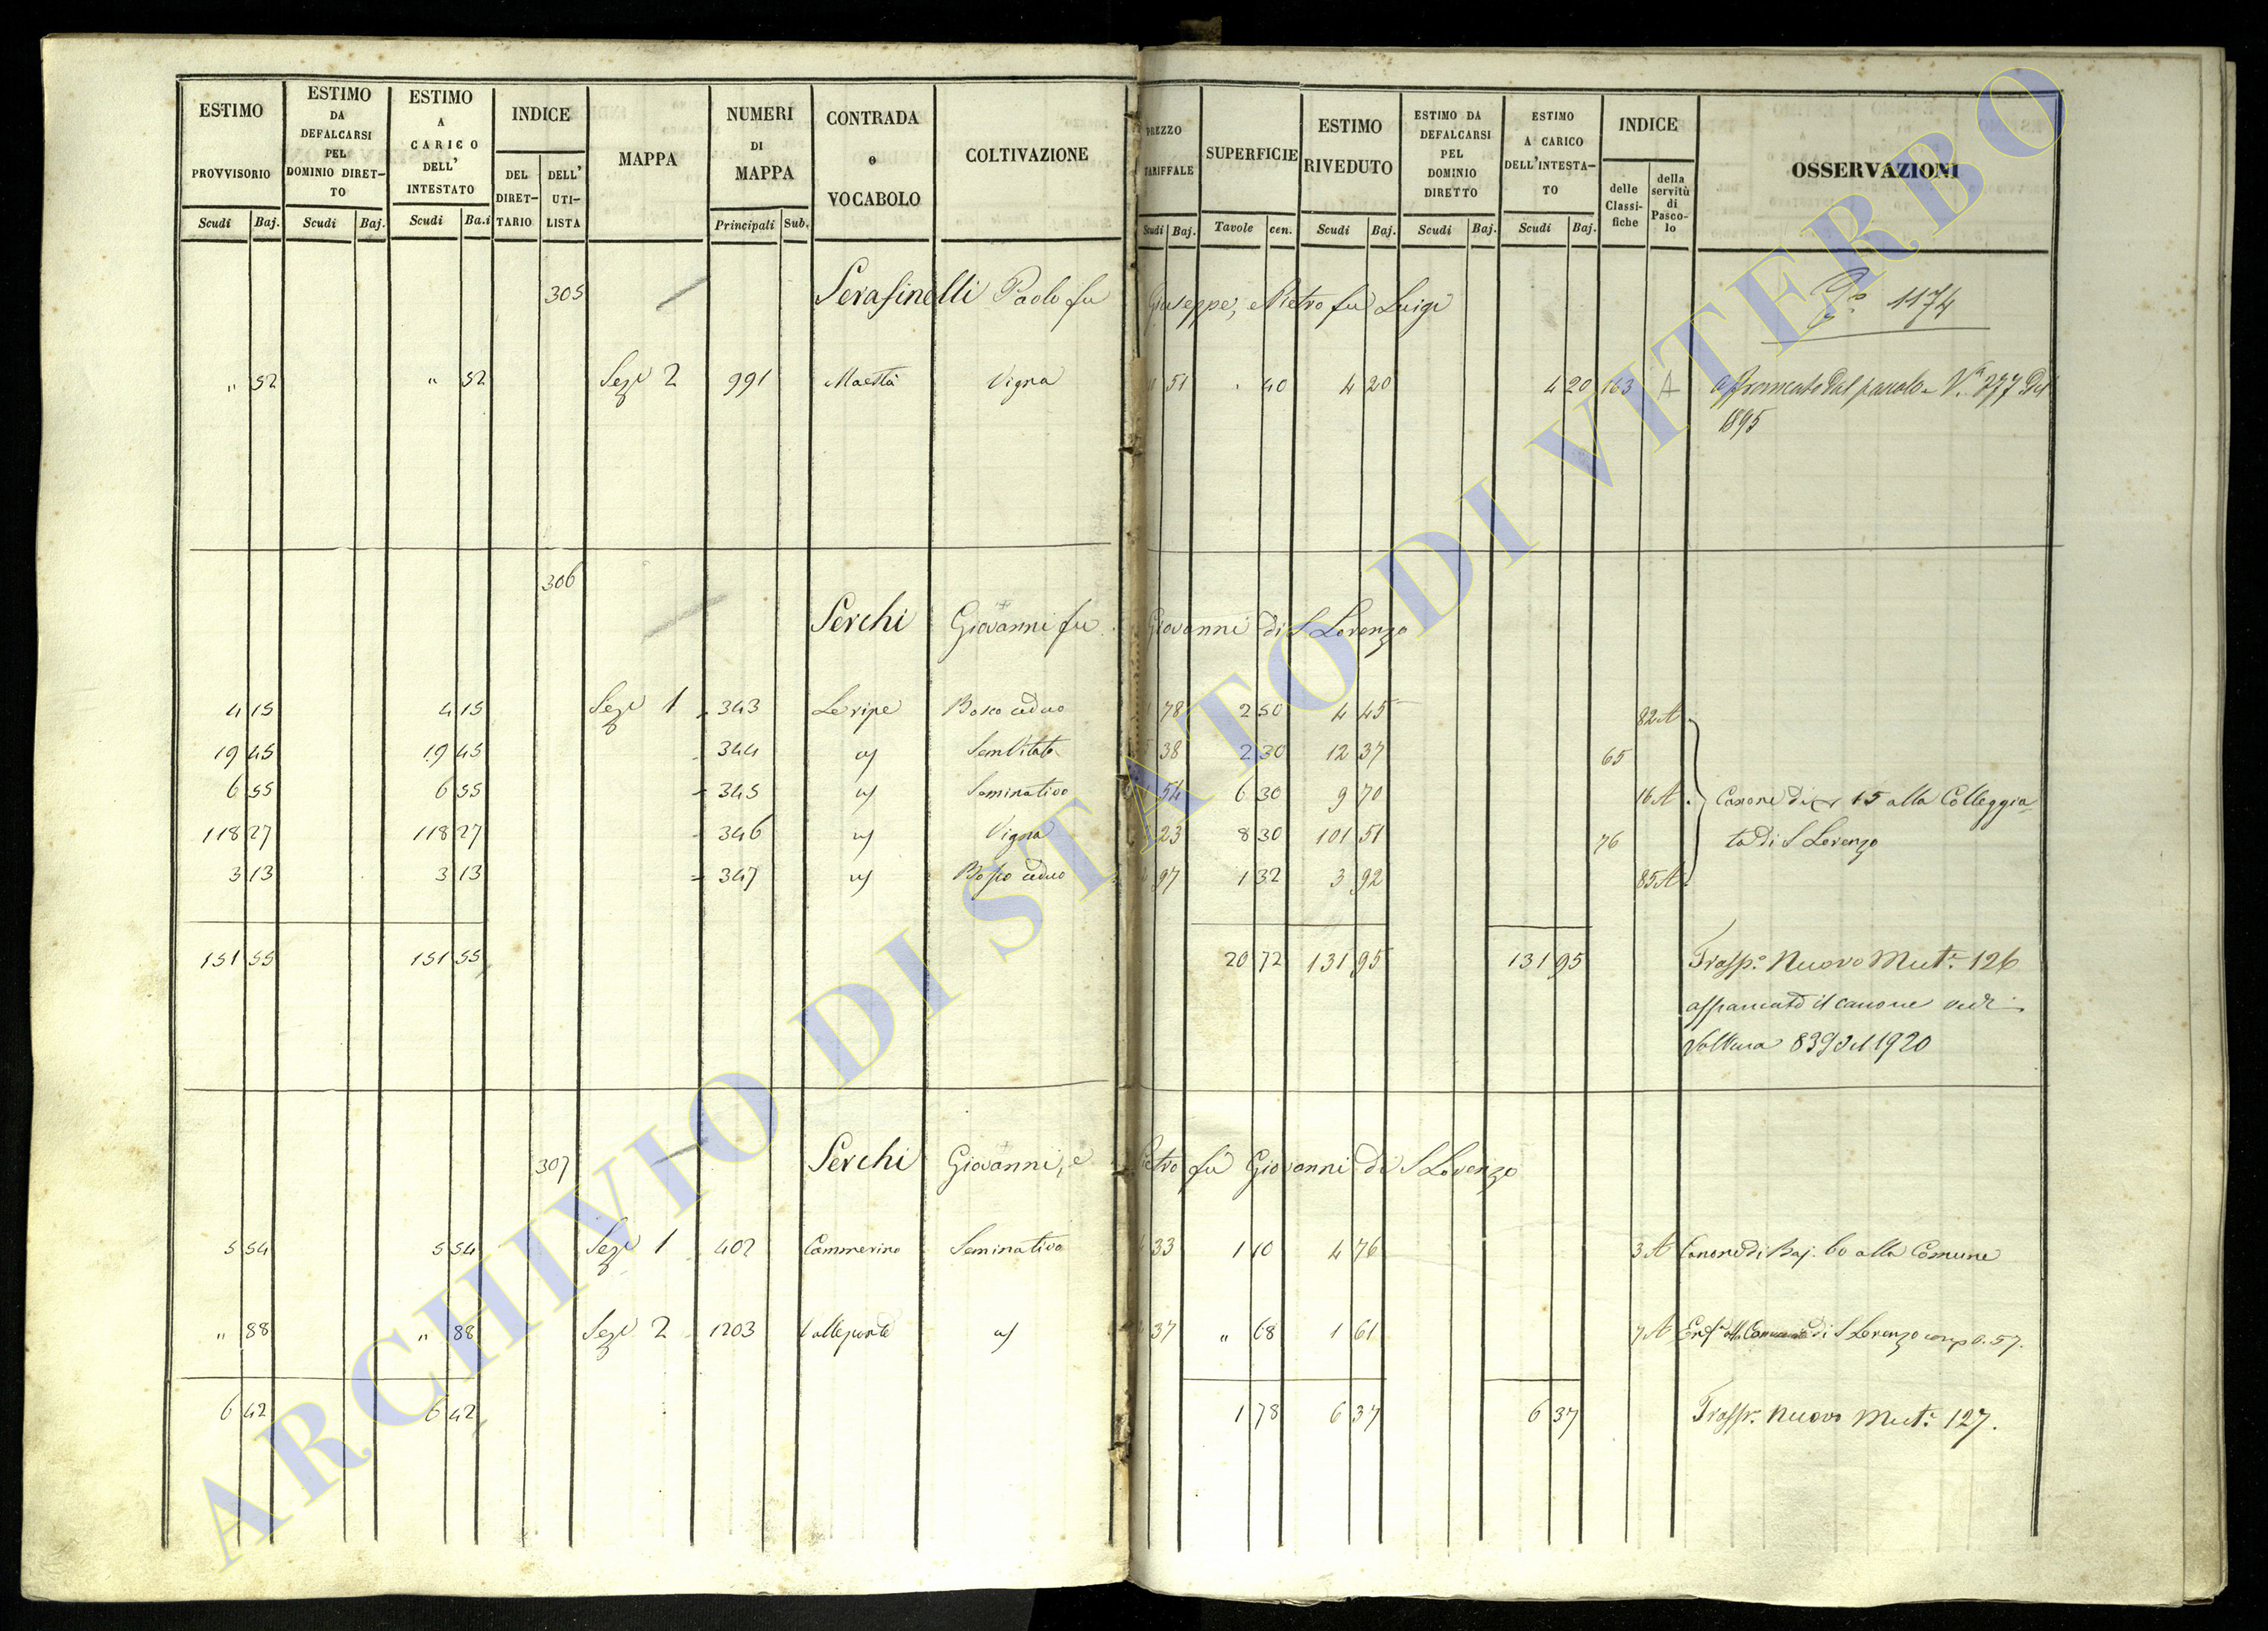 ESTIMO PROVVISORIO Scudi Baj.
ESTIMO DA DEFALCARSI PEL DOMINIO DIRETTO Scudi Baj.
ESTIMO A CARICO DELL' INTESTATO Scudi Ba.i
INDICE DEL DIRETTARIO DELL' UTILISTA
MAPPA
NUMERI DI MAPPA Principali Sub.
CONTRADA o VOCABOLO
COLTIVAZIONE
PREZZO TARIFFALE Scudi Baj.
SUPERFICIE Tavole cen.
ESTIMO RIVEDUTO Scudi Baj.
ESTIMO DA DEFALCARSI PEL DOMINIO DIRETTO Scudi Baj.
ESTIMO A CARICO DELL'INTESTATO Scudi Baj.
INDICE delle Classifiche della servitù di Pascolo
OSSERVAZIONI
305 Serafinelli Paolo fu Giuseppe, e Pietro fu Luigi 1174
" 52 " 52 Sez.e 2 991 Maestà Vigna 51 " 40 4 20 4 20 163 A Affrancato dal pascolo V.a 277 del
1895
306
Serchi Giovanni fu Giovanni di S Lorenzo
4 15 4 15 Sez.e 1 343 Le ripe Bosco ceduo 1 78 2 50 4 45 82 A
19 45 19 45 344 id Sem Vitato 5 38 2 30 12 37 65
6 55 6 55 345 id Seminativo 54 6 30 9 70 16 A Canone di 15 alla Colleggia
118 27 118 27 346 id Vigna 23 8 30 101 51 76 ta di S Lorenzo
3 13 3 13 347 id Bosco ceduo 97 1 32 3 92 85 A
151 55 151 55 20 72 131 95 131 95 Trasp.o Nuovo Mut.e 126
affrancato il canone vedi
Voltura 839 del 1920
307 Serchi Giovanni, e Pietro fu Giovanni di S Lorenzo
5 54 5 54 Sez.e 1 402 Cammerino Seminativo 4 33 1 10 4 76 3 A Canone di Baj. 60 alla Comune
" 88 " 88 Sez.e 2 1203 Valleponte id 2 37 " 68 1 61 7 A Enf.a di S Lorenzo 57.
6 42 6 42 1 78 6 37 6 37 Trasp. Nuovo Mut.e 127.
ARCHIVIO DI STATO DI VITERBO